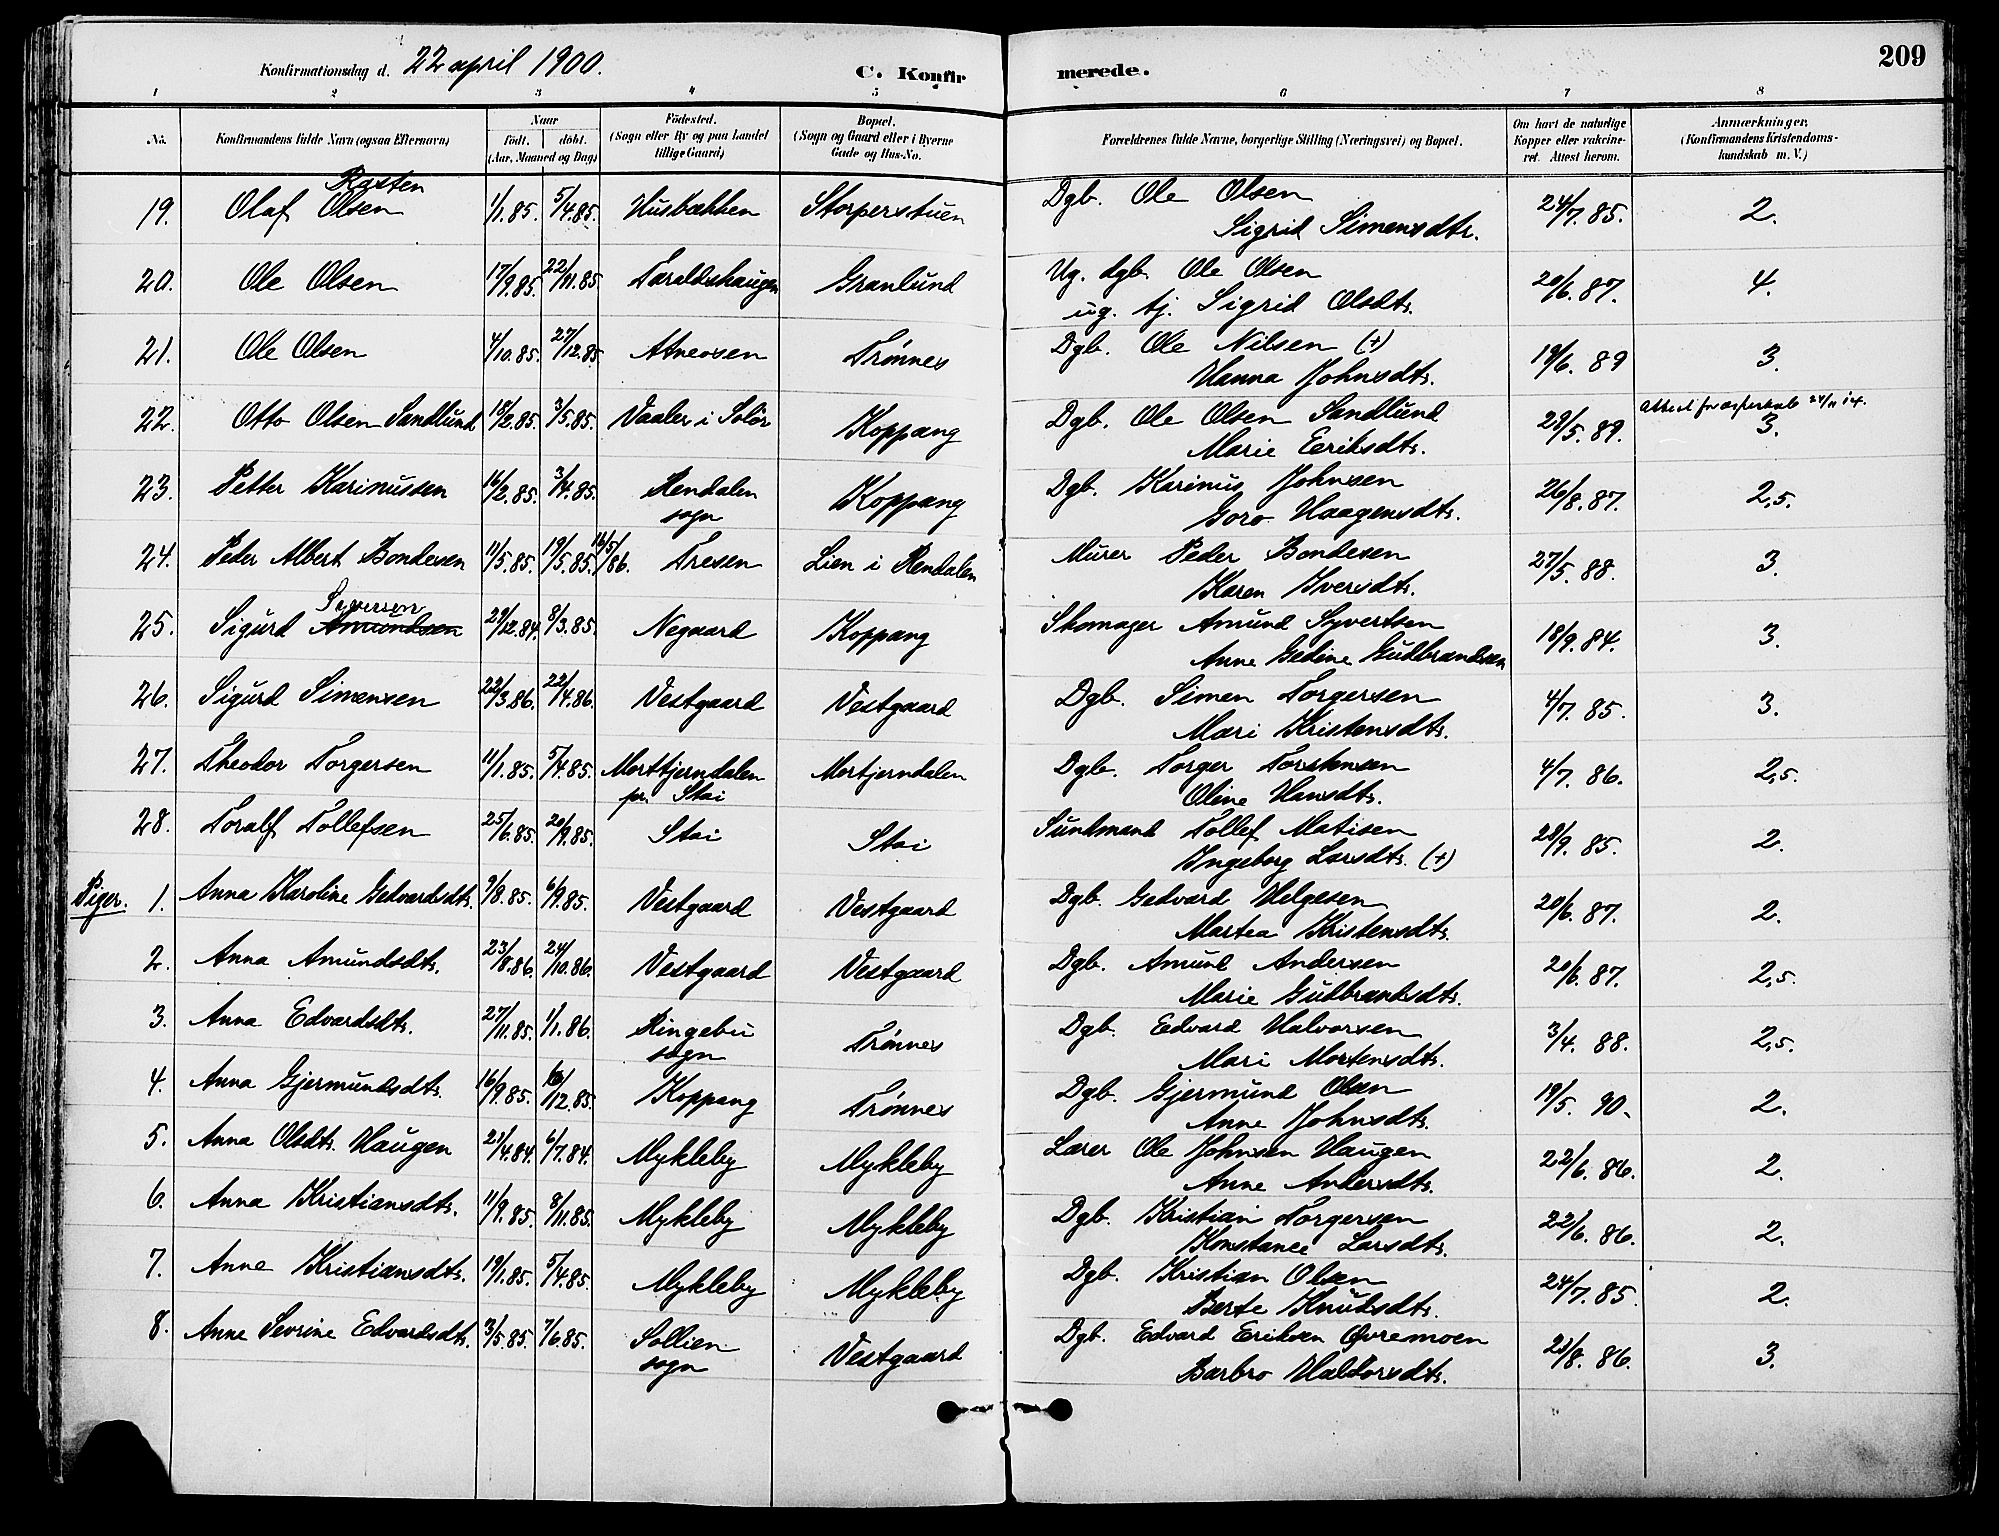 Konfirmationsdag d. 22 april 1900. C. Konfirmerede. 209
1 2 3 4 5 6 7 8
No. Konfirmandens fulde Navn (ogsaa Efternavn) Naar født. døbt. (Aar, Maaned og Dag) Fødested. (Sogn eller By og paa Landet tillige Gaard) Bopæl. (Sogn og Gaard eller i Byerne Gade og Hus-No. Forældrenes fulde Navne, borgerlige Stilling (Næringsvei) og Bopæl. Om havt de naturlige Kopper eller vakcineret. Attest herom. Anmærkninger. (Konfirmandens Kristendomskundskab m. V.)
Rasten
19. Olaf Olsen 1/1.85. 5/4.85. Husbækken Storperstuen Dgb. Ole Olsen 24/7.85. 2.
Sigrid Simensdtr.
20. Ole Olsen 17/9.85. 22/11.85 Taraldshaugen Granlund Ug. dgb. Ole Olsen 20/6.87. 4.
ug. tj. Sigrid Olsdtr.
21. Ole Olsen 4/10.85. 27/12.85 Atneosen Trønnes Dgb. Ole Nilsen (+) 19/6.89 3.
Hanna Johnsdtr.
22. Otto Olsen Sandlund 18/2.85. 3/5.85. Vaaler i Solør Koppang Dgb. Ole Olsen Sandlund 29/5.89. 3.
Marie Eriksdtr.
23. Petter Karinussen 16/2.85. 3/4.85. Rendalen sogn Koppang Dgb. Karinus Johnsen 26/8.87. 2,5.
Goro Haagensdtr.
24. Peder Albert Bondesen 11/5.85. 19/5.85. 16/5/86. Tresen Lien i Rendalen Murer Peder Bondesen 27/5.88. 3.
Karen Iversdtr.
Syversen
25. Sigurd Amundsen 29/12.84. 8/3.85. Negaard Koppang Skomager Amund Syvertsen 18/9.84. 3.
Anne Gedine Gudbrandsen
26. Sigurd Simensen 22/3.86. 22/4.86. Vestgaard Vestgaard Dgb. Simen Torgersen 4/7.85. 3.
Mari Kristensdtr.
27. Theodor Torgersen 11/1.85. 5/4.85. Morttjerndalen pr. Stai Mortjerndalen Dgb. Torger Torstensen 4/7.86. 2,5.
Oline Hansdtr.
28. Toralf Tollefsen 25/6.85. 20/9.85. Stai Stai Sundmand Tollef Matisen 28/9.85. 2.
Ingeborg Larsdtr. (+)
Piger. 1. Anna Karoline Gedvardsdtr. 9/8.85. 6/9.85. Vestgaard Vestgaard Dgb. Gedvard Helgesen 20/6.87. 2.
Martea Kristensdtr.
2. Anna Amundsdtr. 23/8.86. 24/10.86. Vestgaard Vestgaard Dgb. Amund Andersen 20/6.87. 2,5.
Marie Gudbrandsdtr.
3. Anna Edvardsdtr. 27/11.85. 1/1.86. Ringebu sogn Trønnes Dgb. Edvard Halvorsen 3/4.88. 2,5.
Mari Mortensdtr.
4. Anna Gjermundsdtr. 16/9.85. 6/12.85. Koppang Trønnes Dgb. Gjermund Olsen 19/5.90. 2.
Anne Johnsdtr.
5. Anna Olsdtr. Haugen 21/4.84. 6/7.84. Mykleby Mykleby Lærer Ole Johnsen Haugen 22/6.86. 2.
Anne Andersdtr.
6. Anna Kristiansdtr. 11/9.85. 8/11.85. Mykleby Mykleby Dgb. Kristian Torgersen 22/6.86. 2.
Konstance Larsdtr.
7. Anne Kristiansdtr. 19/1.85. 5/4.85. Mykleby Mykleby Dgb. Kristian Olsen 24/7.85. 2.
Berte Knudsdtr.
8. Anne Sevrine Edvardsdtr. 3/5.85. 7/6.85. Sollien sogn Vestgaard Dgb. Edvard Eriksen Øvremoen 23/8.86. 3.
Barbro Haldorsdtr.